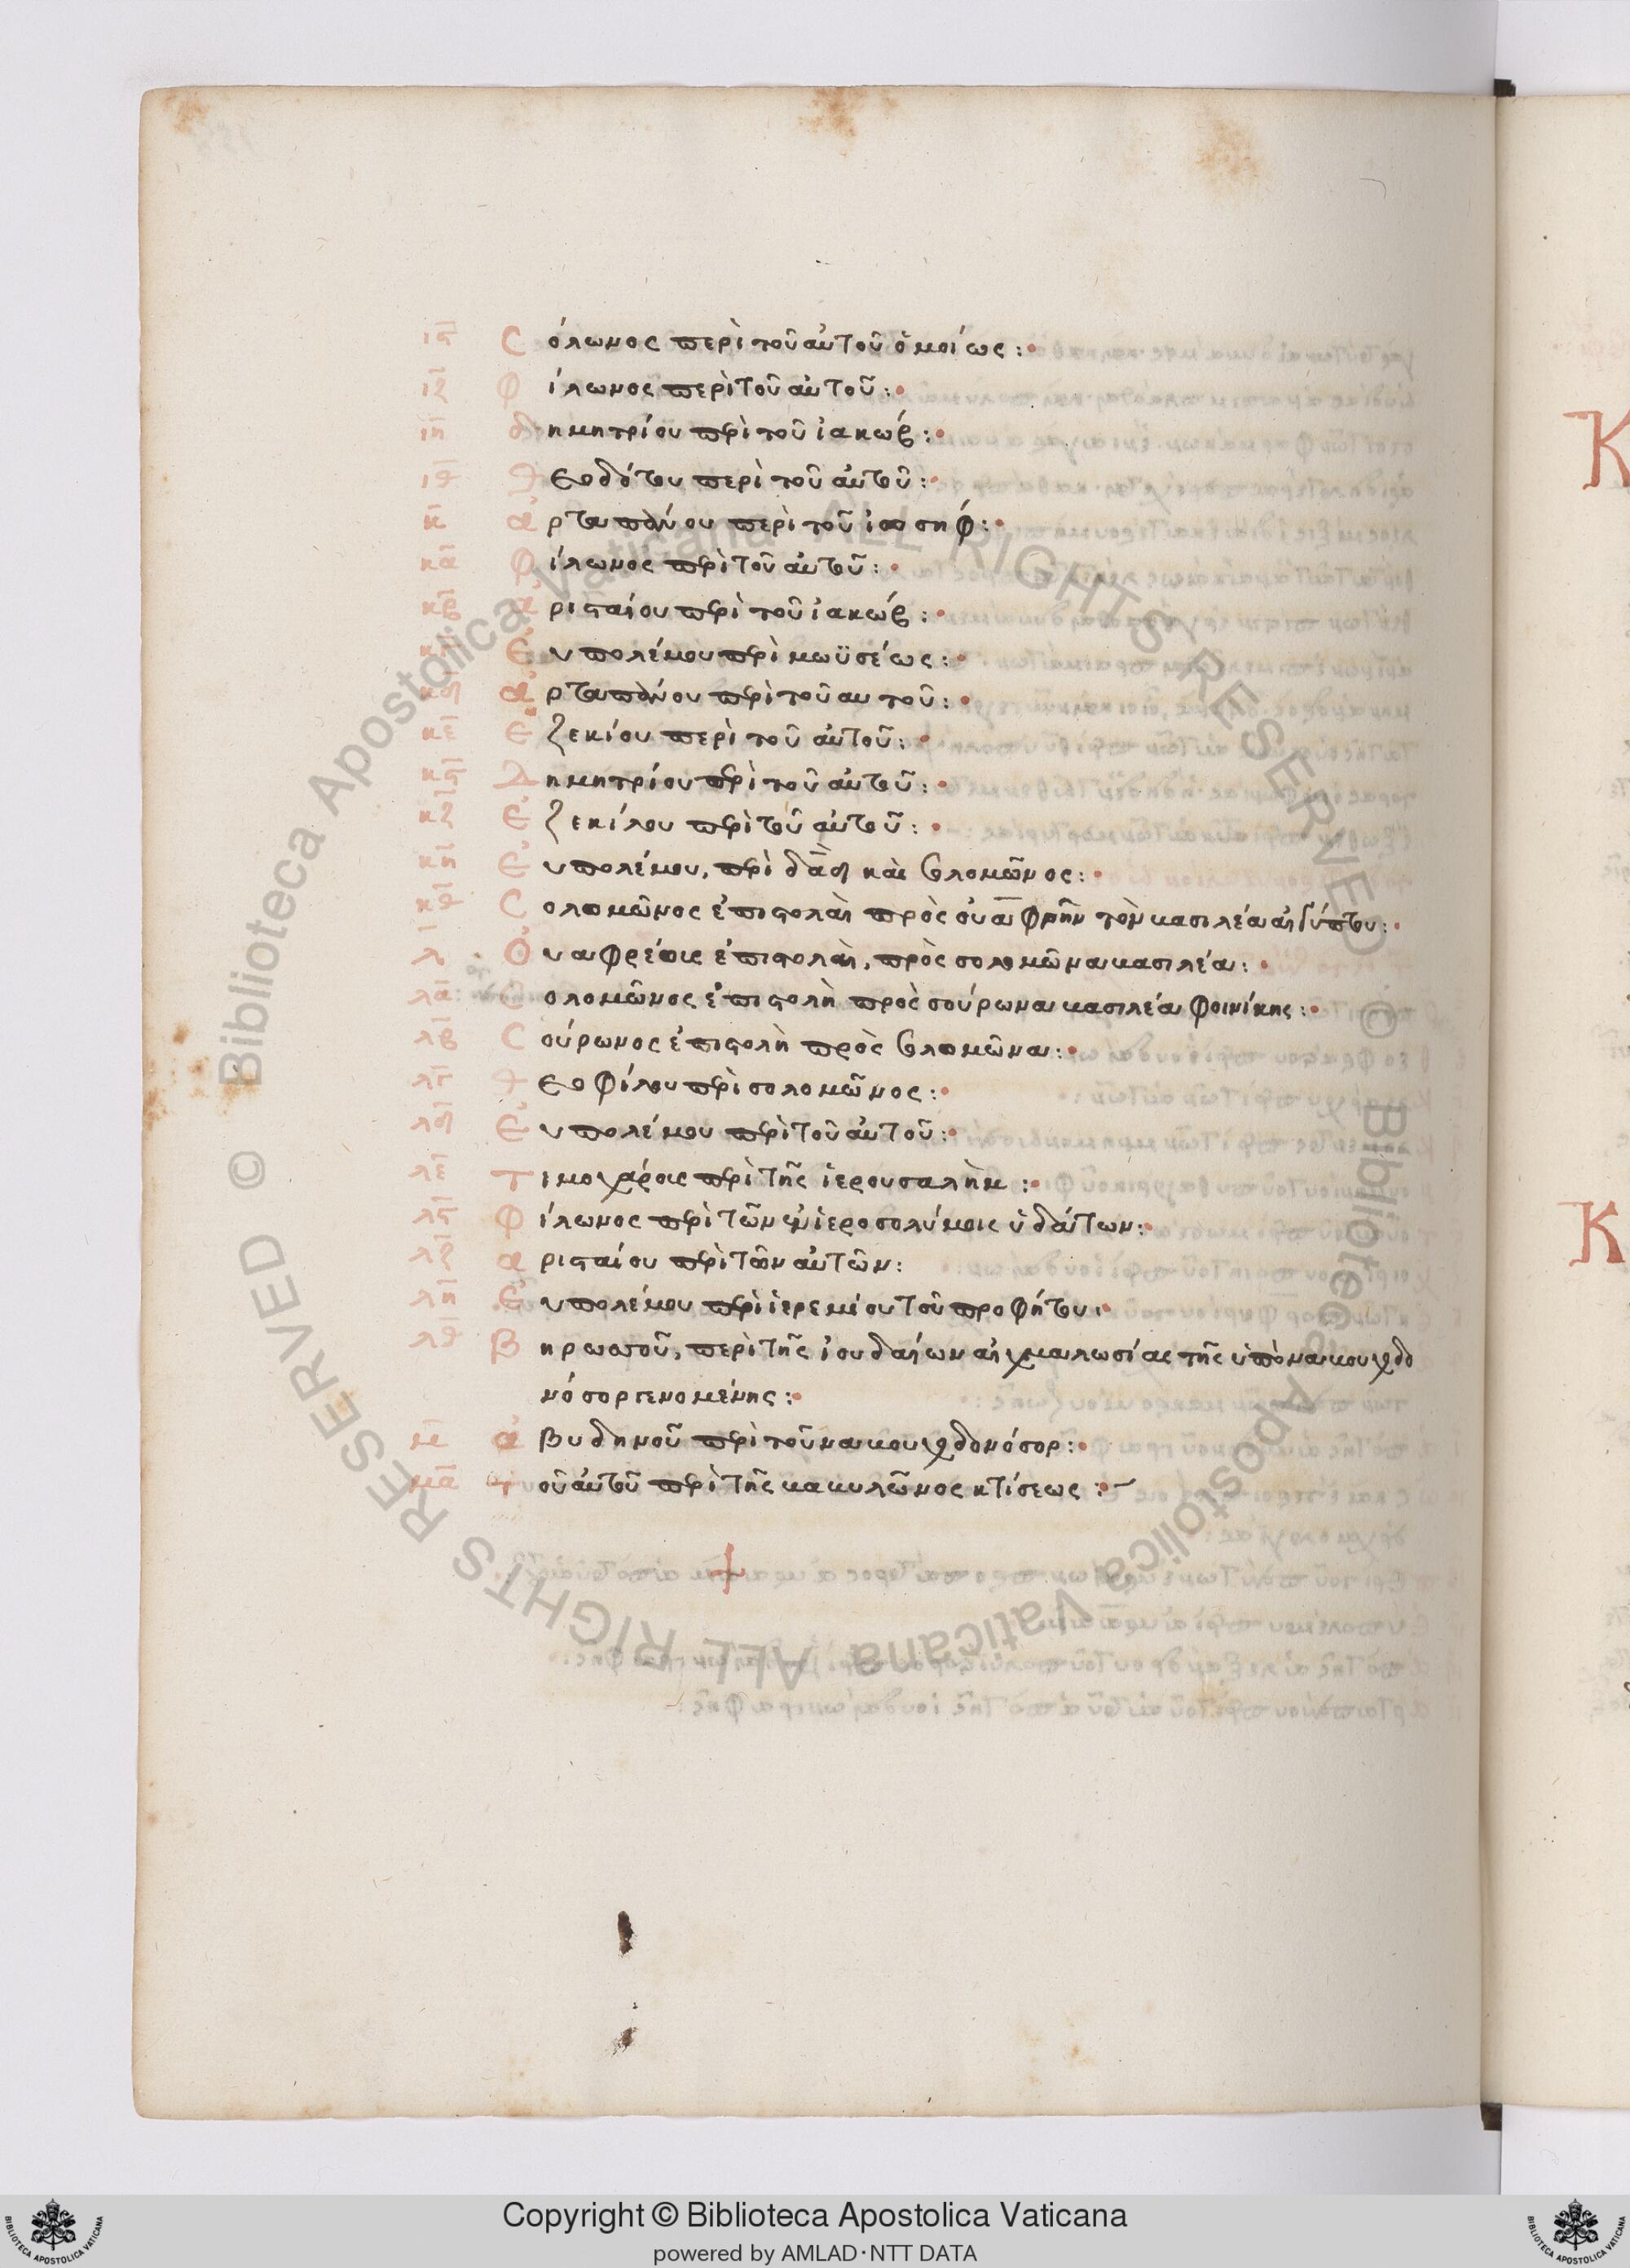 ιϛ Cόλωνος περὶ τοῦ αὐτοῦ ὁμοίως :
ιζ Φίλωνος περὶ τοῦ αὐτοῦ :
ιη δημητρίου περὶ τοῦ ἰακώβ :
ιθ θεοδότου περὶ τοῦ αὐτοῦ :
κ ἀρταπάνου περὶ τοῦ ἰωσήφ :
κα φίλωνος περὶ τοῦ αὐτοῦ :
κβ ἀρισταίου περὶ τοῦ ἰακώβ :
κγ εὐπολέμου περὶ μωϋσέως :
κδ ἀρταπάνου περὶ τοῦ αυτοῦ :
κε ἐζεκίου περὶ τοῦ αὐτοῦ :
κϛ Δημητρίου περὶ τοῦ αὐτοῦ :
κζ ἐζεκίλου περὶ τοῦ αὐτοῦ :
κη εὐπολέμου, περὶ δαδ καὶ σολομῶνος :
κθ Cολομῶνος ἐπιστολὴ πρὸς οὐαφρῆν τὸν βασιλέα αἰγύπτου :
λ Οὐαφρέως ἐπιστολὴ, πρὸς σολομῶνα βασιλέα :
λα Cολομῶνος ἐπιστολὴ πρὸς σούρωνα βασιλέα φοινίκης :
λβ Cούρωνος ἐπιστολὴ πρὸς σολομῶνα :
λγ θεοφίλου περὶ σολομῶνος :
λδ εὐπολέμου περὶ τοῦ αὐτοῦ :
λε Τιμοχάρους περὶ τῆς ἱερουσαλὴμ :
λϛ Φίλωνος περὶ τῶν ἐν ἱεροσολύμοις ὑδάτων :
λζ αρισταίου περὶ τῶν αὐτῶν :
λη εὐπολέμου περὶ ἱερεμίου τοῦ προφήτου :
λθ Βηρωσσοῦ, περὶ τῆς ἰουδαίων αἰχμαλωσίας τῆς ὑπὸ ναβουχοδο
νόσορ γενομένης :
μ ἀβυδηνοῦ περὶ τοῦ ναβουχοδονόσορ :
μα τοῦ αὐτοῦ περὶ τῆς βαβυλῶνος κτίσεως :
Copyright © Biblioteca Apostolica Vaticana
powered by AMLAD·NTT DATA